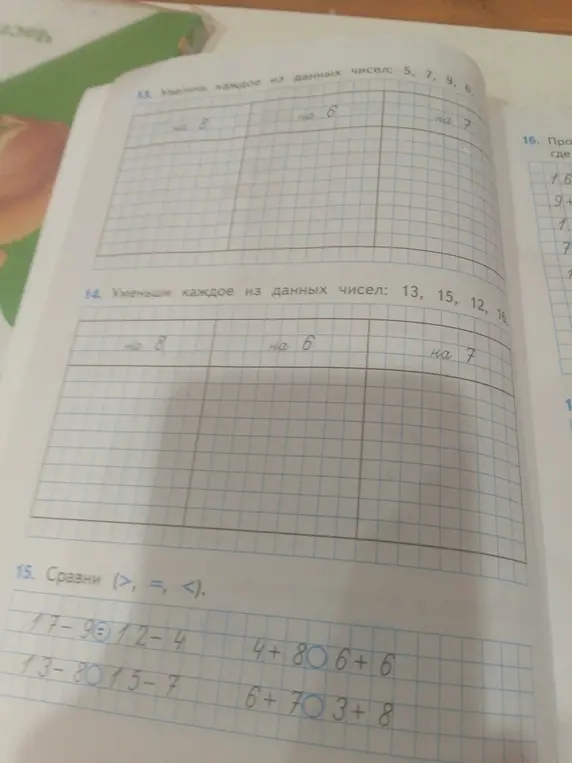 13. Увеличь каждое из данных чисел: 5, 7, 9, 6.
на 8 на 6 на 7
14. Уменьши каждое из данных чисел: 13, 15, 12, 16.
на 8 на 6 на 7
15. Сравни (>, =, <).
17 - 9 = 12 - 4 4 + 8 6 + 6
13 - 8 15 - 7 6 + 7 3 + 8
16. Про
сде
16
9+
1
7
1